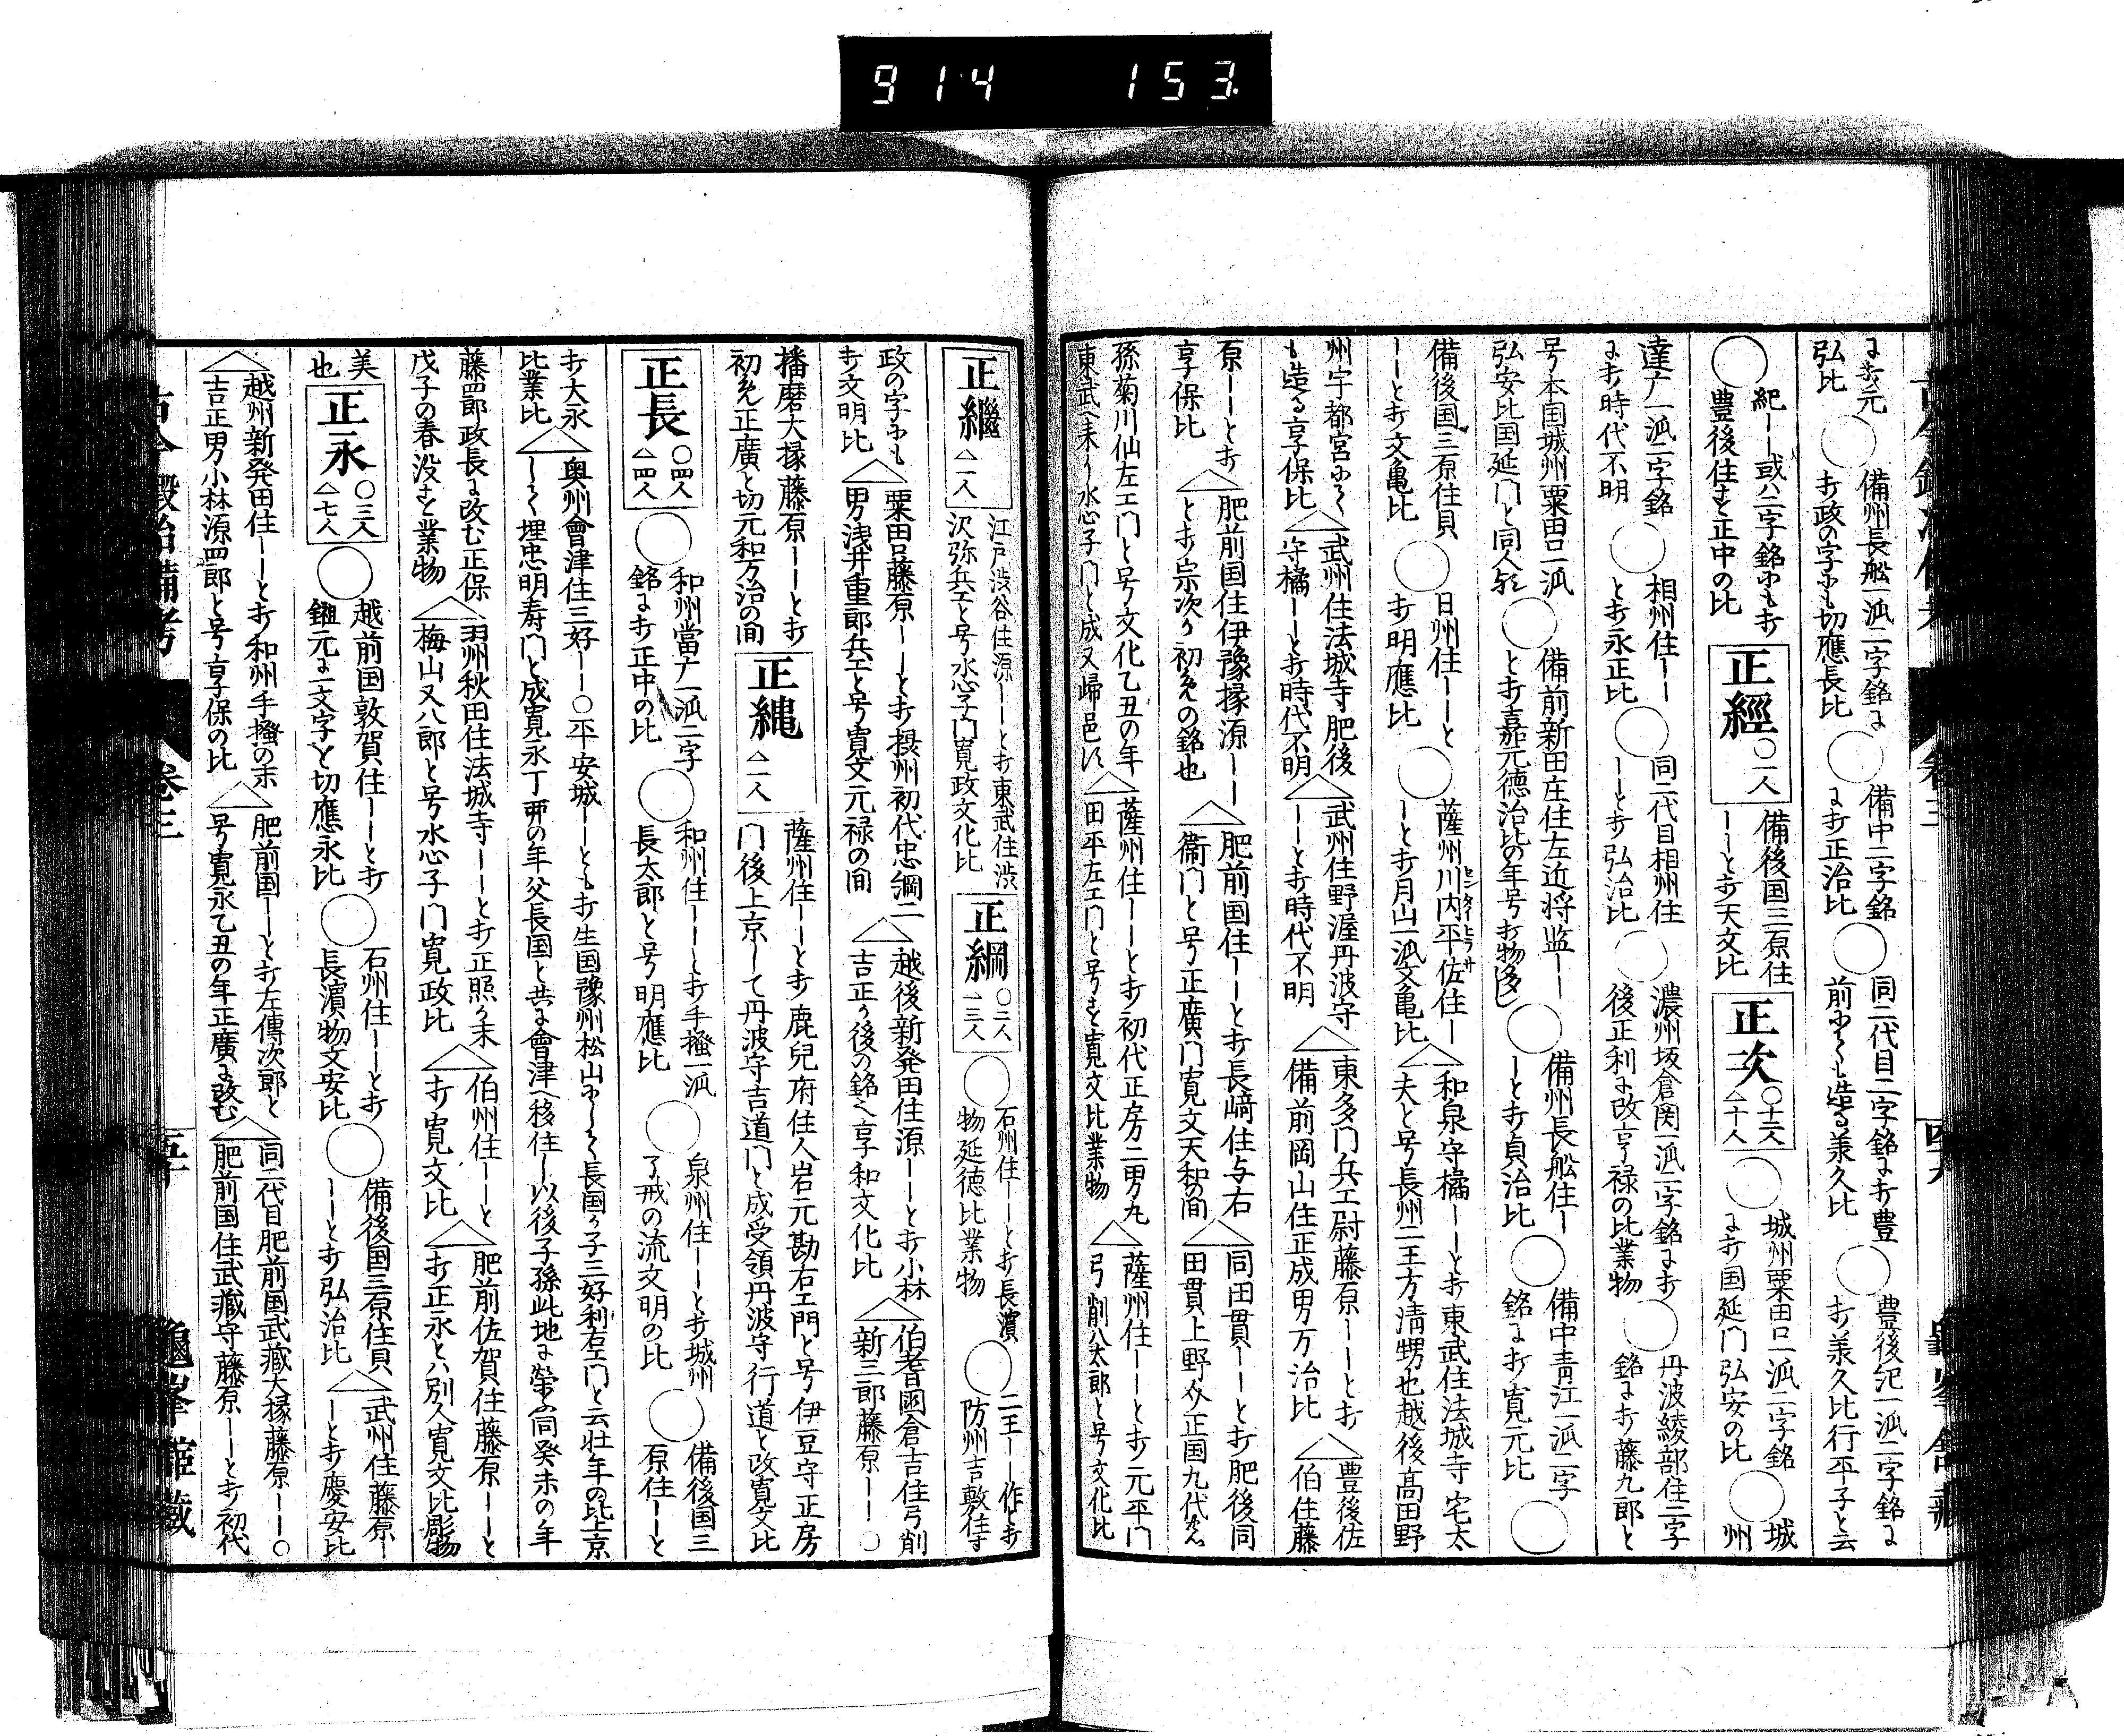 914 153.
に打元
弘比
備州長舩一派二字銘に
打政の字にも切應長比
備中二字銘
に打正治比
同二代目二字銘に打豊
前にても造る兼久比
豊後紀一派二字銘に
打兼久比行平子と云
紀ー一或ハ二字銘にも打
豊後住すと正中の比
正經
〇一人
備後国三原住
ーーと打天文比
正次
〇十二人
△十人
城州粟田口一派二字銘
に打国延門弘安の比
城
州
達广一派二字銘
に打時代不明
相州住ーー
と打永正比
同二代目相州住
ーーと打弘治比
濃州坂倉関一派二字銘に打
後正利に改亨禄の比業物
丹波綾部住二字
銘に打藤九郎と
号本国城州粟田口一派
弘安比国延門と同人欤
備前新田庄住左近将监ー
と打嘉元徳治比の年号打物多し
備州長舩住ー
ーと打貞治比
備中青江一派二字
銘に打寛元比
備後国三原住貝
ーーと打文亀比
日州住ーーと
打明應比
薩州川内平佐住ー
ーと打月山一派文亀比
和泉守橘ーーと打東武住法城寺宅太
夫と号長州二王方清甥也越後髙田野
州宇都宮にて
も造る享保比
武州住法城寺肥後
守橘ーーと打時代不明
武州住野渥丹波守
ーーと打時代不明
東多门兵エ尉藤原ーーと打
備前岡山住正成男万治比
豊後佐
伯住藤
原ーーと打
享保比
肥前国住伊豫掾源ーー
と打宗次か初めの銘也
肥前国住ーーと打長﨑住与右
衞门と号正廣门寛文天和の间
同田貫ーーと打肥後同
田貫上野介正国九代
孫菊川仙左エ门と号文化乙丑の年
東武へ来り水心子门と成又歸邑ス
薩州住ーーと打初代正房二男九
田平左エ门と号すと寛文比業物
薩州住ーーと打元平门
弓削八太郎と号文化比
正繼
△一人
江戸渋谷住源ーーと打東武住渋
沢弥兵エと号水心子门寛政文化比
正綱
〇二人
△三人
石州住ーーと打長濵
物延徳比業物
二王ーー作と打
防州吉敷住
政の字にも
打文明比
粟田口藤原ーーと打摂州初代忠綱二
男浅井重郎兵エと号寛文元禄の间
越後新発田住源ーーと打小林
吉正か後の銘也享和文化比
伯耆国倉吉住弓削
新三郎藤原ーー〇
播磨大掾藤原ーーと打
初め正廣と切元和万治の间
正縄
△一人
薩州住ーーと打鹿兒府住人岩元勘右エ門と号伊豆守正房
门後上京して丹波守吉道门と成受領丹波守行道と改寛文比
正長
〇四人
△四人
和州當广一派二字
銘に打正中の比
和州住ーーと打手搔一派
長太郎と号明應比
泉州住ーーと打城州
了戒の流文明の比
備後国三
原住ーーと
打大永
比業比
奥州會津住三好ーー〇平安城ーーとも打生国豫州松山にて長国か子三好利右エ门と云壮年の比上京
ーて埋忠明寿门と成寛永丁卯の年父長国と共に會津へ移住し以後子孫此地に榮ふ同癸未の年
藤四郎政長に改む正保
戊子の春没すと業物
羽州秋田住法城寺ーーと打正照か末
梅山又八郎と号水心子门寛政比
伯州住ーーと
打寛文比
肥前佐賀住藤原ーーと
打正永とハ別人寛文比彫物
美
也
正永
〇三人
△七人
越前国敦賀住ーーと打
鉏元に一文字と切應永比
石州住ーーと打
長濵物文安比
備後国三原住貝
ーーと打弘治比
武州住藤原ー
ーと打慶安比
越州新発田住ーーと打和州手搔の末
吉正男小林源四郎と号享保の比
肥前国ーーと打左傳次郎と
号寛永乙丑の年正廣に改む
同二代目肥前国武藏大掾藤原ーー〇
肥前国住武藏守藤原ーーと打初代
古今鍛冶備考
卷三
五十